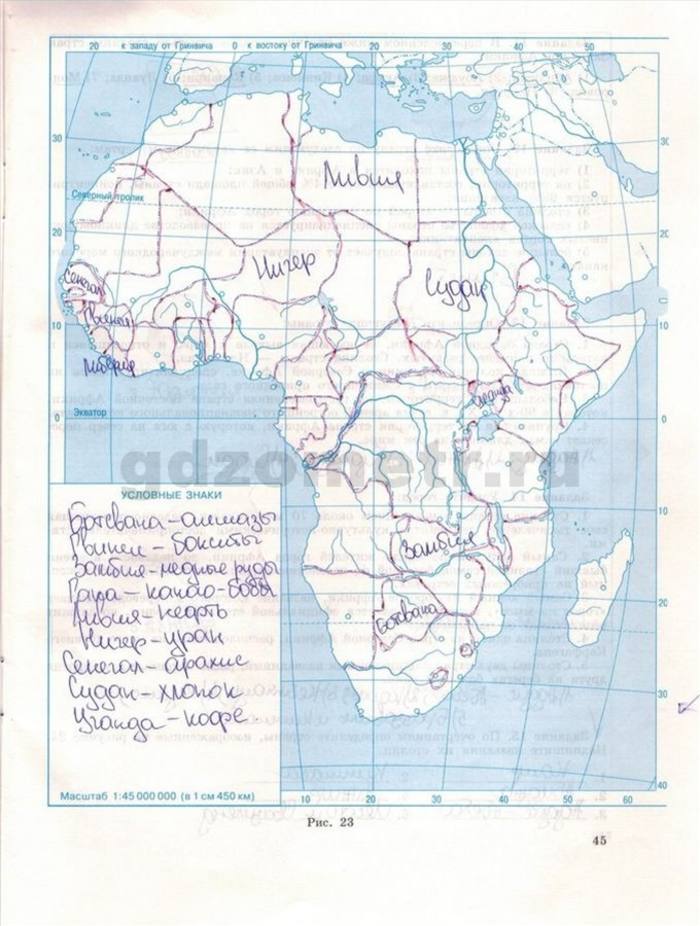 20 к западу от Гринвича 0 к востоку от Гринвича 20 30 40 50
30 30
Ливия
Северный тропик
20 20
Нигер
Сенегал
Судан
Гвинея
10 10
Либерия
Уганда
0 Экватор 0
gdzometr.ru
УСЛОВНЫЕ ЗНАКИ
10
Ботсвана – алмазы
Гвинея – бокситы
Замбия
Замбия – медные руды
Гана – какао-бобы
20
Ливия – нефть
Ботсвана
Нигер – уран
Сенегал – арахис
Судан – хлопок
30
Уганда – кофе
40
Масштаб 1:45 000 000 (в 1 см 450 км)
10 20 30 40 50 60
Рис. 23
45